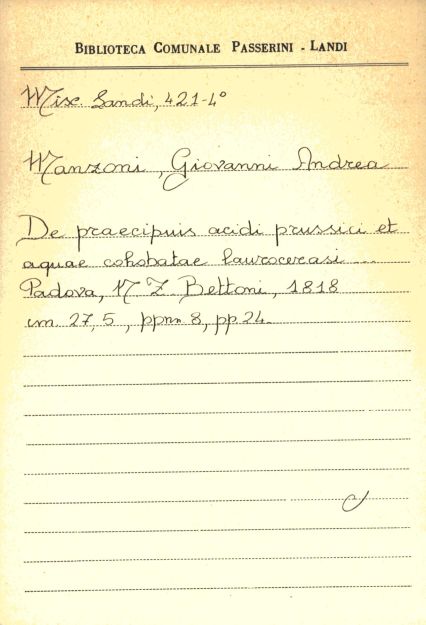 BIBLIOTECA COMUNALE PASSERINI - LANDI
Misc. Landi, 421-4°
Manzoni, Giovanni Andrea
De praecipuis acidi prussici et
aquae cohobatae laurocerasi ...
Padova, N Z Bettoni, 1818
cm 27,5, ppnn 8, pp 24.